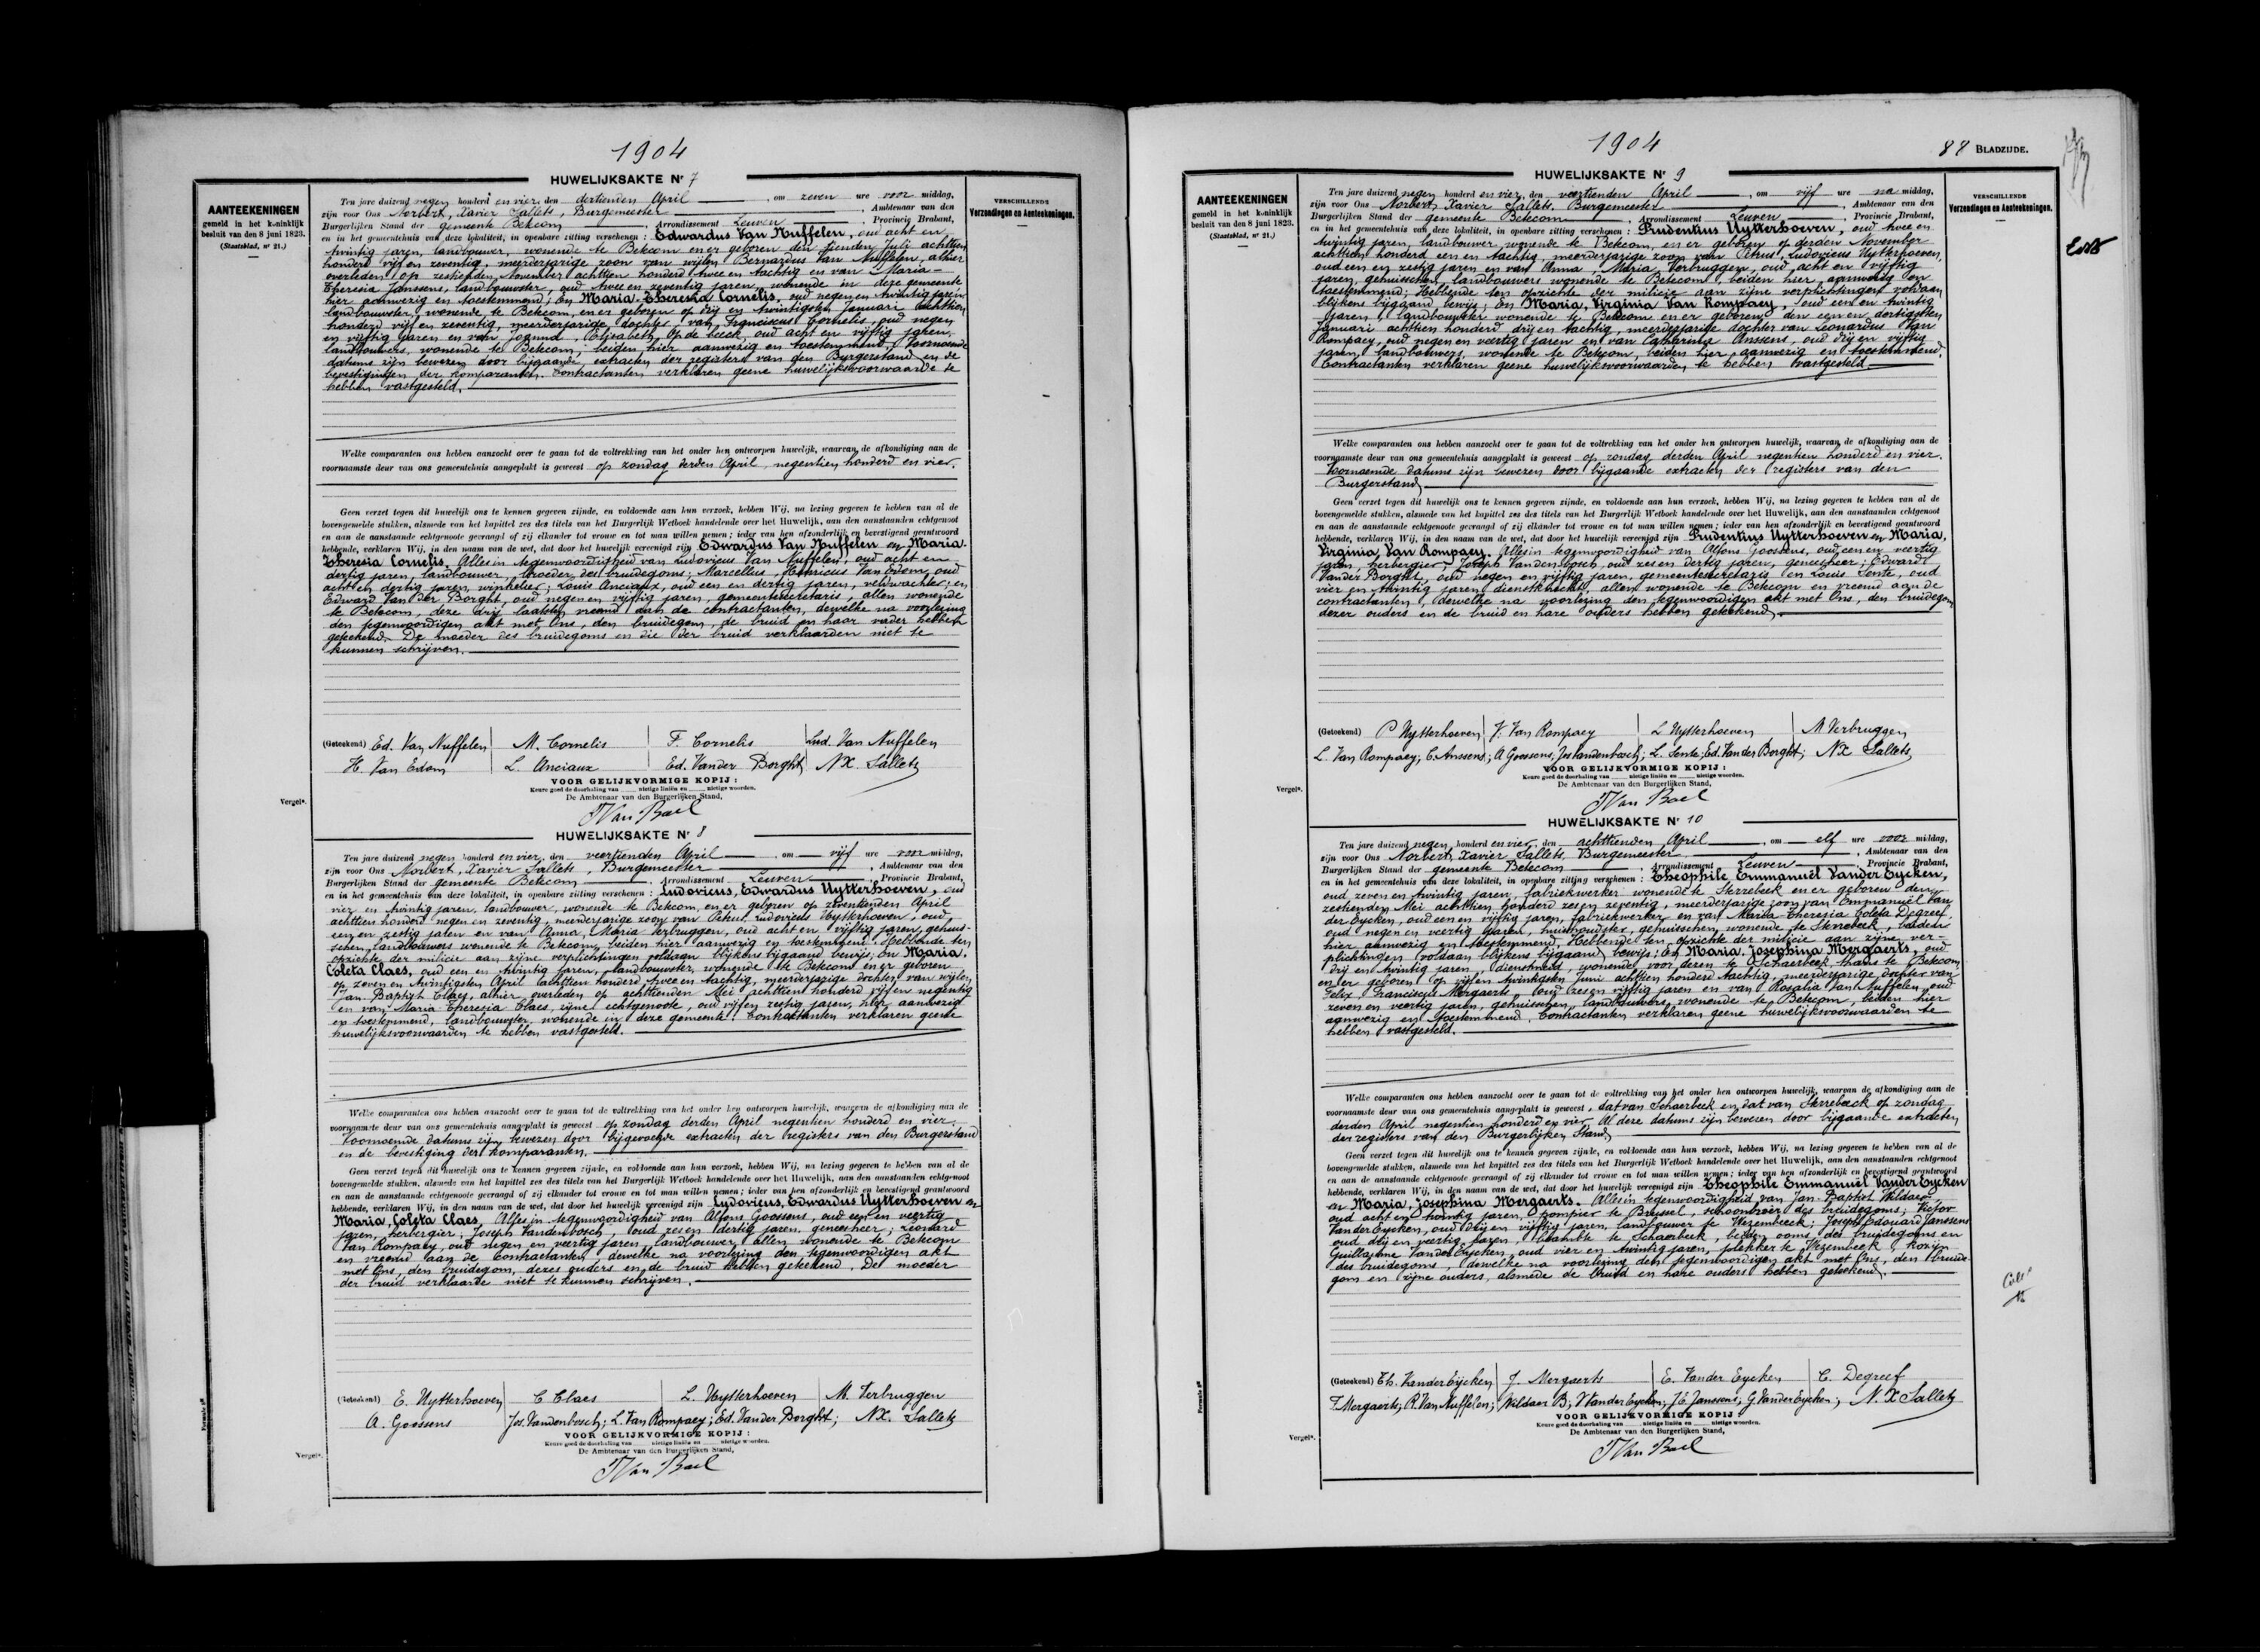 1904
HUWELIJKSAKTE Nr 7
AANTEEKENINGEN
gemeld in het koninklijk
besluit van den 8 juni 1823.
(Staatsblad, nr 21.)
VERSCHILLENDE
Verzendingen en Aanteekeningen.
Ten jare duizend negen honderd en vier, den dertienden April, om zeven ure voor middag,
zijn voor Ons Norbert, Xavier Sallets, Burgemeester, Ambtenaar van den
Burgerlijken Stand der gemeente Bekcom, Arrondissement Leuven, Provincie Brabant,
en in het gemeentehuis van deze lokaliteit, in openbare zitting verschenen : Edwardus Van Nuffelen, oud acht en
twintig jaren, landbouwer, wonende te Betecom en er geboren den tienden Juli achttien
honderd vijf en zeventig, meerderjarige zoon van wijlen Bernardus Van Nuffelen, alhier
overleden op zestienden November achttien honderd twee en tachtig en van Maria-
Theresia Janssens, landbouwster, oud twee en zeventig jaren, wonende in deze gemeente
hier aanwezig en toestemmend; En Maria-Theresia Cornelis, oud negen en twintig jaren,
landbouwster wonende te Betecom, en er geboren op drij en twintigsten Januari achttien
honderd vijf en zeventig, meerderjarige dochter van Franciscus Cornelis, oud negen
en vijftig jaren en van Joanna, Elisabeth, Op de beeck, oud acht en vijftig jaren,
landbouwers, wonende te Betecom, beiden hier aanwezig en toestemmend. Voornoemde
datums zijn bewezen door bijgaande extracten der registers van den Burgerstand en de
bevestigingen der komparanten. Contractanten verklaren geene huwelijksvoorwaarde te
hebben vastgesteld.
Welke comparanten ons hebben aanzocht over te gaan tot de voltrekking van het onder hen ontworpen huwelijk, waarvan de afkondiging aan de
voornaamste deur van ons gemeentehuis aangeplakt is geweest op zondag derden April, negentien honderd en vier.
Geen verzet tegen dit huwelijk ons te kennen gegeven zijnde, en voldoende aan hun verzoek, hebben Wij, na lezing gegeven te hebben van al de
bovengemelde stukken, alsmede van het kapittel zes des titels van het Burgerlijk Wetboek handelende over het Huwelijk, aan den aanstaanden echtgenoot
en aan de aanstaande echtgenoote gevraagd of zij elkander tot vrouw en tot man willen nemen ; ieder van hen afzonderlijk en bevestigend geantwoord
hebbende, verklaren Wij, in den naam van de wet, dat door het huwelijk vereenigd zijn Edwardus Van Nuffelen en Maria-
Theresia Cornelis. Alles in tegenwoordigheid van Ludovicus Van Nuffelen, oud acht en
dertig jaren, landbouwer, broeder des bruidegoms; Marcellus, Henricus Van Edom, oud
acht en dertig jaren, winkelier; Louis Anciaux, oud een en dertig jaren, veldwachter; en
Edward Van der Borght oud negen en vijftig jaren, gemeentesecretaris, allen wonende
te Betecom, deze drij laatsten vreemd aan de contractanten, dewelke na voorlezing
den tegenwoordigen akt met Ons, den bruidegom, de bruid en haar vader hebben
geteekend. De moeder des bruidegoms en die der bruid verklaarden niet te
kunnen schrijven.
(Geteekend) Ed. Van Nuffelen M. Cornelis F. Cornelis Lud. Van Nuffelen
H. Van Edom L. Anciaux Ed. Vander Borght NX. Sallets
VOOR GELIJKVORMIGE KOPIJ :
Keure goed de doorhaling van nietige liniën en nietige woorden.
De Ambtenaar van den Burgerlijken Stand,
Vergeln.
Van Bael
HUWELIJKSAKTE Nr 8
Ten jare duizend negen honderd en vier, den veertienden April, om vijf ure voor middag,
zijn voor Ons Norbert, Xavier Sallets, Burgemeester, Ambtenaar van den
Burgerlijken Stand der gemeente Betecom, Arrondissement Leuven, Provincie Brabant,
en in het gemeentehuis van deze lokaliteit, in openbare zitting verschenen : Ludovicus, Edwardus Uytterhoeven, oud
vier en twintig jaren, landbouwer, wonende te Betecom, en er geboren op zeventienden April
achttien honderd negen en zeventig, meerderjarige zoon van Petrus Ludovicus Uytterhoeven, oud
een en zestig jaren en van Anna, Maria Verbruggen, oud acht en vijftig jaren, gehuis-
schen, landbouwers wonende te Betecom, beiden hier aanwezig en toestemmend. Hebbende ten
opzichte der militie aan zijne verplichtingen voldaan blijkens bijgaand bewijs; En Maria,
Coleta Claes, oud een en twintig jaren, landbouwster, wonende te Betecom en er geboren
op zeven en twintigsten April achttien honderd twee en tachtig, meerderjarige dochter van wijlen
Jan Baptist Claes, alhier overleden op achttienden Mei achttien honderd vijf en negentig
en van Maria Theresia Claes, zijne echtgenoote, oud vijf en zestig jaren, hier aanwezig
en toestemmend, landbouwster wonende in deze gemeente. Contractanten verklaren geene
huwelijksvoorwaarden te hebben vastgesteld.
Welke comparanten ons hebben aanzocht over te gaan tot de voltrekking van het onder hen ontworpen huwelijk, waarvan de afkondiging aan de
voornaamste deur van ons gemeentehuis aangeplakt is geweest op zondag derden April negentien honderd en vier.
Voornoemde datums zijn bewezen door bijgevoegde extracten der registers van den Burgerstand
en de bevestiging der komparanten.
Geen verzet tegen dit huwelijk ons te kennen gegeven zijnde, en voldoende aan hun verzoek, hebben Wij, na lezing gegeven te hebben van al de
bovengemelde stukken, alsmede van het kapittel zes des titels van het Burgerlijk Wetboek handelende over het Huwelijk, aan den aanstaanden echtgenoot
en aan de aanstaande echtgenoote gevraagd of zij elkander tot vrouw en tot man willen nemen ; ieder van hen afzonderlijk en bevestigend geantwoord
hebbende, verklaren Wij, in den naam van de wet, dat door het huwelijk vereenigd zijn Ludovicus, Edwardus Uytterhoeven en
Maria, Coleta Claes. Alles in tegenwoordigheid van Alfons Goossens, oud een en veertig
jaren, herbergier; Joseph Vandenbosch, oud zes en dertig jaren, geneesheer; Leonard
Van Rompaey, oud negen en veertig jaren, landbouwer, allen wonende te Betecom
en vreemd aan de Contractanten, dewelke na voorlezing den tegenwoordigen akt
met Ons, den bruidegom, dezes ouders en de bruid hebben geteekend. De moeder
der bruid verklaarde niet te kunnen schrijven.
(Geteekend) E. Uytterhoeven C Claes L. Uytterhoeven M. Verbruggen
A. Goossens Jos. Vandenbosch; L. Van Rompaey; Ed. Vander Borght; NX. Sallets
VOOR GELIJKVORMIGE KOPIJ :
Keure goed de doorhaling van nietige liniën en nietige woorden.
De Ambtenaar van den Burgerlijken Stand,
Vergeln.
Van Bael
1904
88 BLADZIJDE.
HUWELIJKSAKTE Nr 9
AANTEEKENINGEN
gemeld in het koninklijk
besluit van den 8 juni 1823.
(Staatsblad, nr 21.)
VERSCHILLENDE
Verzendingen en Aanteekeningen.
Ten jare duizend negen honderd en vier, den veertienden April, om vijf ure na middag,
zijn voor Ons Norbert, Xavier Sallets, Burgemeester, Ambtenaar van den
Burgerlijken Stand der gemeente Betecom, Arrondissement Leuven, Provincie Brabant,
en in het gemeentehuis van deze lokaliteit, in openbare zitting verschenen : Prudentius Uytterhoeven, oud twee en
twintig jaren, landbouwer, wonende te Betecom, en er geboren op derden November
achttien honderd een en tachtig, meerderjarige zoon van Petrus, Ludovicus Uytterhoeven,
oud een en zestig jaren en van Anna, Maria Verbruggen, oud acht en vijftig
jaren, gehuisschen, landbouwers wonende te Betecom, beiden hier aanwezig en
toestemmend; Hebbende ten opzichte der militie aan zijne verplichtingen voldaan
blijkens bijgaand bewijs; En Maria, Virginia Van Rompaey, oud een en twintig
jaren, landbouwster wonende te Betecom en er geboren den een en dertigsten
Januari achttien honderd drij en tachtig, meerderjarige dochter van Leonardus Van
Rompaey, oud negen en veertig jaren en van Catharina Anssens, oud drij en vijftig
jaren, landbouwers, wonende te Betecom, beiden hier aanwezig en toestemmend.
Contractanten verklaren geene huwelijksvoorwaarden te hebben vastgesteld.
Welke comparanten ons hebben aanzocht over te gaan tot de voltrekking van het onder hen ontworpen huwelijk, waarvan de afkondiging aan de
voornaamste deur van ons gemeentehuis aangeplakt is geweest op zondag derden April negentien honderd en vier.
Voornoemde datums zijn bewezen door bijgaande extracten der registers van den
Burgerstand
Geen verzet tegen dit huwelijk ons te kennen gegeven zijnde, en voldoende aan hun verzoek, hebben Wij, na lezing gegeven te hebben van al de
bovengemelde stukken, alsmede van het kapittel zes des titels van het Burgerlijk Wetboek handelende over het Huwelijk, aan den aanstaanden echtgenoot
en aan de aanstaande echtgenoote gevraagd of zij elkander tot vrouw en tot man willen nemen ; ieder van hen afzonderlijk en bevestigend geantwoord
hebbende, verklaren Wij, in den naam van de wet, dat door het huwelijk vereenigd zijn Prudentius Uytterhoeven en Maria,
Virginia Van Rompaey. Alles in tegenwoordigheid van Alfons Goossens, oud een en veertig
jaren, herbergier; Joseph Vandenbosch, oud zes en dertig jaren, geneesheer; Edward
Vander Borght, oud negen en vijftig jaren, gemeentesecretaris en Louis Sente, oud
vier en twintig jaren, dienstknecht, allen wonende te Betecom en vreemd aan de
contractanten, dewelke na voorlezing den tegenwoordigen akt met Ons, den bruidegom
dezer ouders en de bruid en hare ouders hebben geteekend.
(Geteekend) P Uytterhoeven V. Van Rompaey L Uytterhoeven M Verbruggen
L. Van Rompaey; C. Anssens; A Goossens; Jos Vandenbosch; L. Sente; Ed. Van der Borght; NX Sallets
VOOR GELIJKVORMIGE KOPIJ :
Keure goed de doorhaling van nietige liniën en nietige woorden.
De Ambtenaar van den Burgerlijken Stand,
Vergeln.
Van Bael
HUWELIJKSAKTE Nr 10
Ten jare duizend negen honderd en vier, den achttienden April, om elf ure voor middag,
zijn voor Ons Norbert, Xavier Sallets, Burgemeester, Ambtenaar van den
Burgerlijken Stand der gemeente Betecom, Arrondissement Leuven, Provincie Brabant,
en in het gemeentehuis van deze lokaliteit, in openbare zitting verschenen : Theophile Emmanuël Vander Eycken,
oud zeven en twintig jaren, fabriekwerker wonende te Sterrebeek en er geboren den
zestienden Mei achttien honderd zes en zeventig, meerderjarige zoon van Emmanuël Van
der Eycken, oud een en vijftig jaren, fabriekwerker en van Maria Theresia Coleta Degreef,
oud negen en veertig jaren, huishoudster, gehuisschen, wonende te Sterrebeek, beiden
hier aanwezig en toestemmend. Hebbende ten opzichte der militie aan zijne ver-
plichtingen voldaan blijkens bijgaand bewijs; En Maria, Josephina Mergaerts, oud
drij en twintig jaren, dienstmeid, wonende voor dezen te Schaerbeek, thans te Betecom
en er geboren op vijf en twintigsten Juni achttien honderd tachtig, meerderjarige dochter van
Felix Franciscus Mergaerts, oud zes en vijftig jaren en van Rosalia Van Nuffelen, oud
zeven en veertig jaren, gehuisschen, landbouwers, wonende te Betecom, beiden hier
aanwezig en toestemmend. Contractanten verklaren geene huwelijksvoorwaarden te
hebben vastgesteld.
Welke comparanten ons hebben aanzocht over te gaan tot de voltrekking van het onder hen ontworpen huwelijk, waarvan de afkondiging aan de
voornaamste deur van ons gemeentehuis aangeplakt is geweest, dat van Schaerbeek en dat van Sterrebeek op zondag
derden April negentien honderd en vier. Al deze datums zijn bewezen door bijgaande extracten
der registers van den Burgerlijken Stand
Geen verzet tegen dit huwelijk ons te kennen gegeven zijnde, en voldoende aan hun verzoek, hebben Wij, na lezing gegeven te hebben van al de
bovengemelde stukken, alsmede van het kapittel zes des titels van het Burgerlijk Wetboek handelende over het Huwelijk, aan den aanstaanden echtgenoot
en aan de aanstaande echtgenoote gevraagd of zij elkander tot vrouw en tot man willen nemen ; ieder van hen afzonderlijk en bevestigend geantwoord
hebbende, verklaren Wij, in den naam van de wet, dat door het huwelijk vereenigd zijn Theophile Emmanuël Vander Eycken
en Maria, Josephina Mergaerts. Alles in tegenwoordigheid van Jan-Baptist Wildaer,
oud acht en twintig jaren, pompier te Brussel, schoonbroer des bruidegoms; Victor
Vander Eycken, oud drij en vijftig jaren, landbouwer te Wezembeeck; Joseph Edouard Janssens
oud drij en veertig jaren, beambte te Schaerbeek, beiden ooms des bruidegoms en
Guillaume Vander Eycken, oud vier en twintig jaren, plekker te Wezembeek, kozijn
des bruidegoms, dewelke na voorlezing den tegenwoordigen akt met Ons, den bruide-
gom en zijne ouders, alsmede de bruid en hare ouders hebben geteekend.
(Geteekend) Th. Vander Eycken J. Mergaerts E. Vander Eycken C. Degreef
F. Mergaerts; R. Van Nuffelen; Wildaer B; V Vander Eycken; J E. Janssens; G Vander Eycken; N. X Sallets
VOOR GELIJKVORMIGE KOPIJ :
Keure goed de doorhaling van nietige liniën en nietige woorden.
De Ambtenaar van den Burgerlijken Stand,
Vergeln.
Van Bael